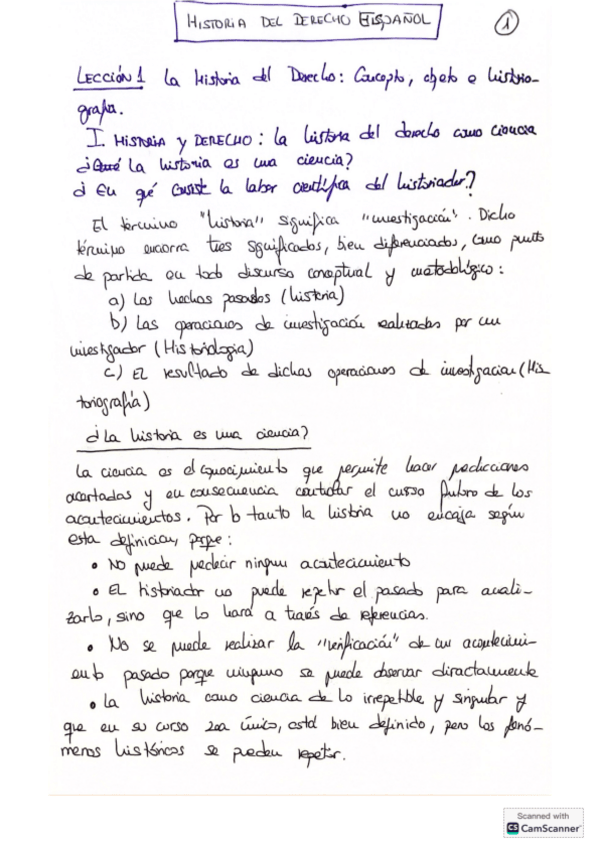 HISTORIA DEL DERECHO ESPAÑOL
1
LECCIÓN 1 La Historia del Derecho: Concepto, objeto e historio-
grafía.
I. HISTORIA y DERECHO: la historia del derecho como ciencia
¿Qué la historia es una ciencia?
¿En qué consiste la labor científica del historiador?
El término "historia" significa "investigación". Dicho
término encierra tres significados, bien diferenciados, como punto
de partida en todo discurso conceptual y metodológico:
a) Los hechos pasados (historia)
b) Las operaciones de investigación realizadas por un
investigador (Historiología)
c) El resultado de dichas operaciones de investigación (His
toriografía)
¿La historia es una ciencia?
La ciencia es el conocimiento que permite hacer predicciones
acertadas y en consecuencia controlar el curso futuro de los
acontecimientos. Por lo tanto la historia no encaja según
esta definición, porque:
• No puede predecir ningún acontecimiento
• El historiador no puede repetir el pasado para anali-
zarlo, sino que lo hará a través de referencias.
• No se puede realizar la "verificación" de un acontecimi-
ento pasado porque ninguno se puede observar directamente
• La historia como ciencia de lo irrepetible y singular y
que en su curso sea único, está bien definido, pero los fenó-
menos históricos se pueden repetir.
Scanned with
CS CamScanner